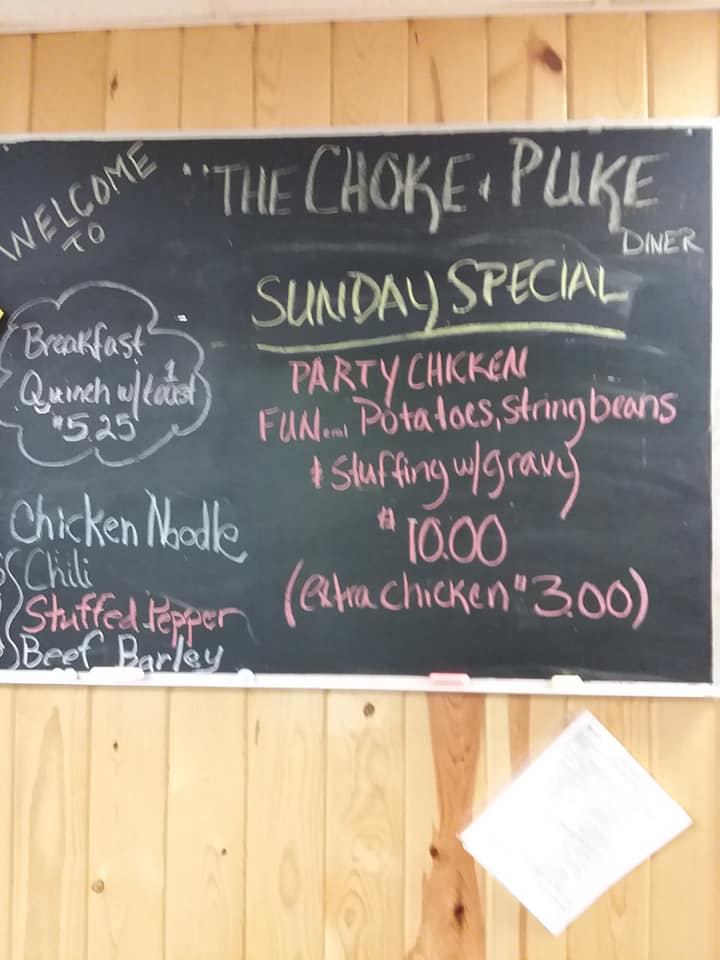 WELCOME
TO
"THE CHOKE & PUKE
DINER
SUNDAY SPECIAL
PARTY CHICKEN
FUN.... Potatoes, string beans
& stuffing w/gravy
$10.00
(extra chicken $3.00)
Breakfast
Quinch w/1 toast
$5.25
Chicken Noodle
Chili
Stuffed Pepper
Beef Barley